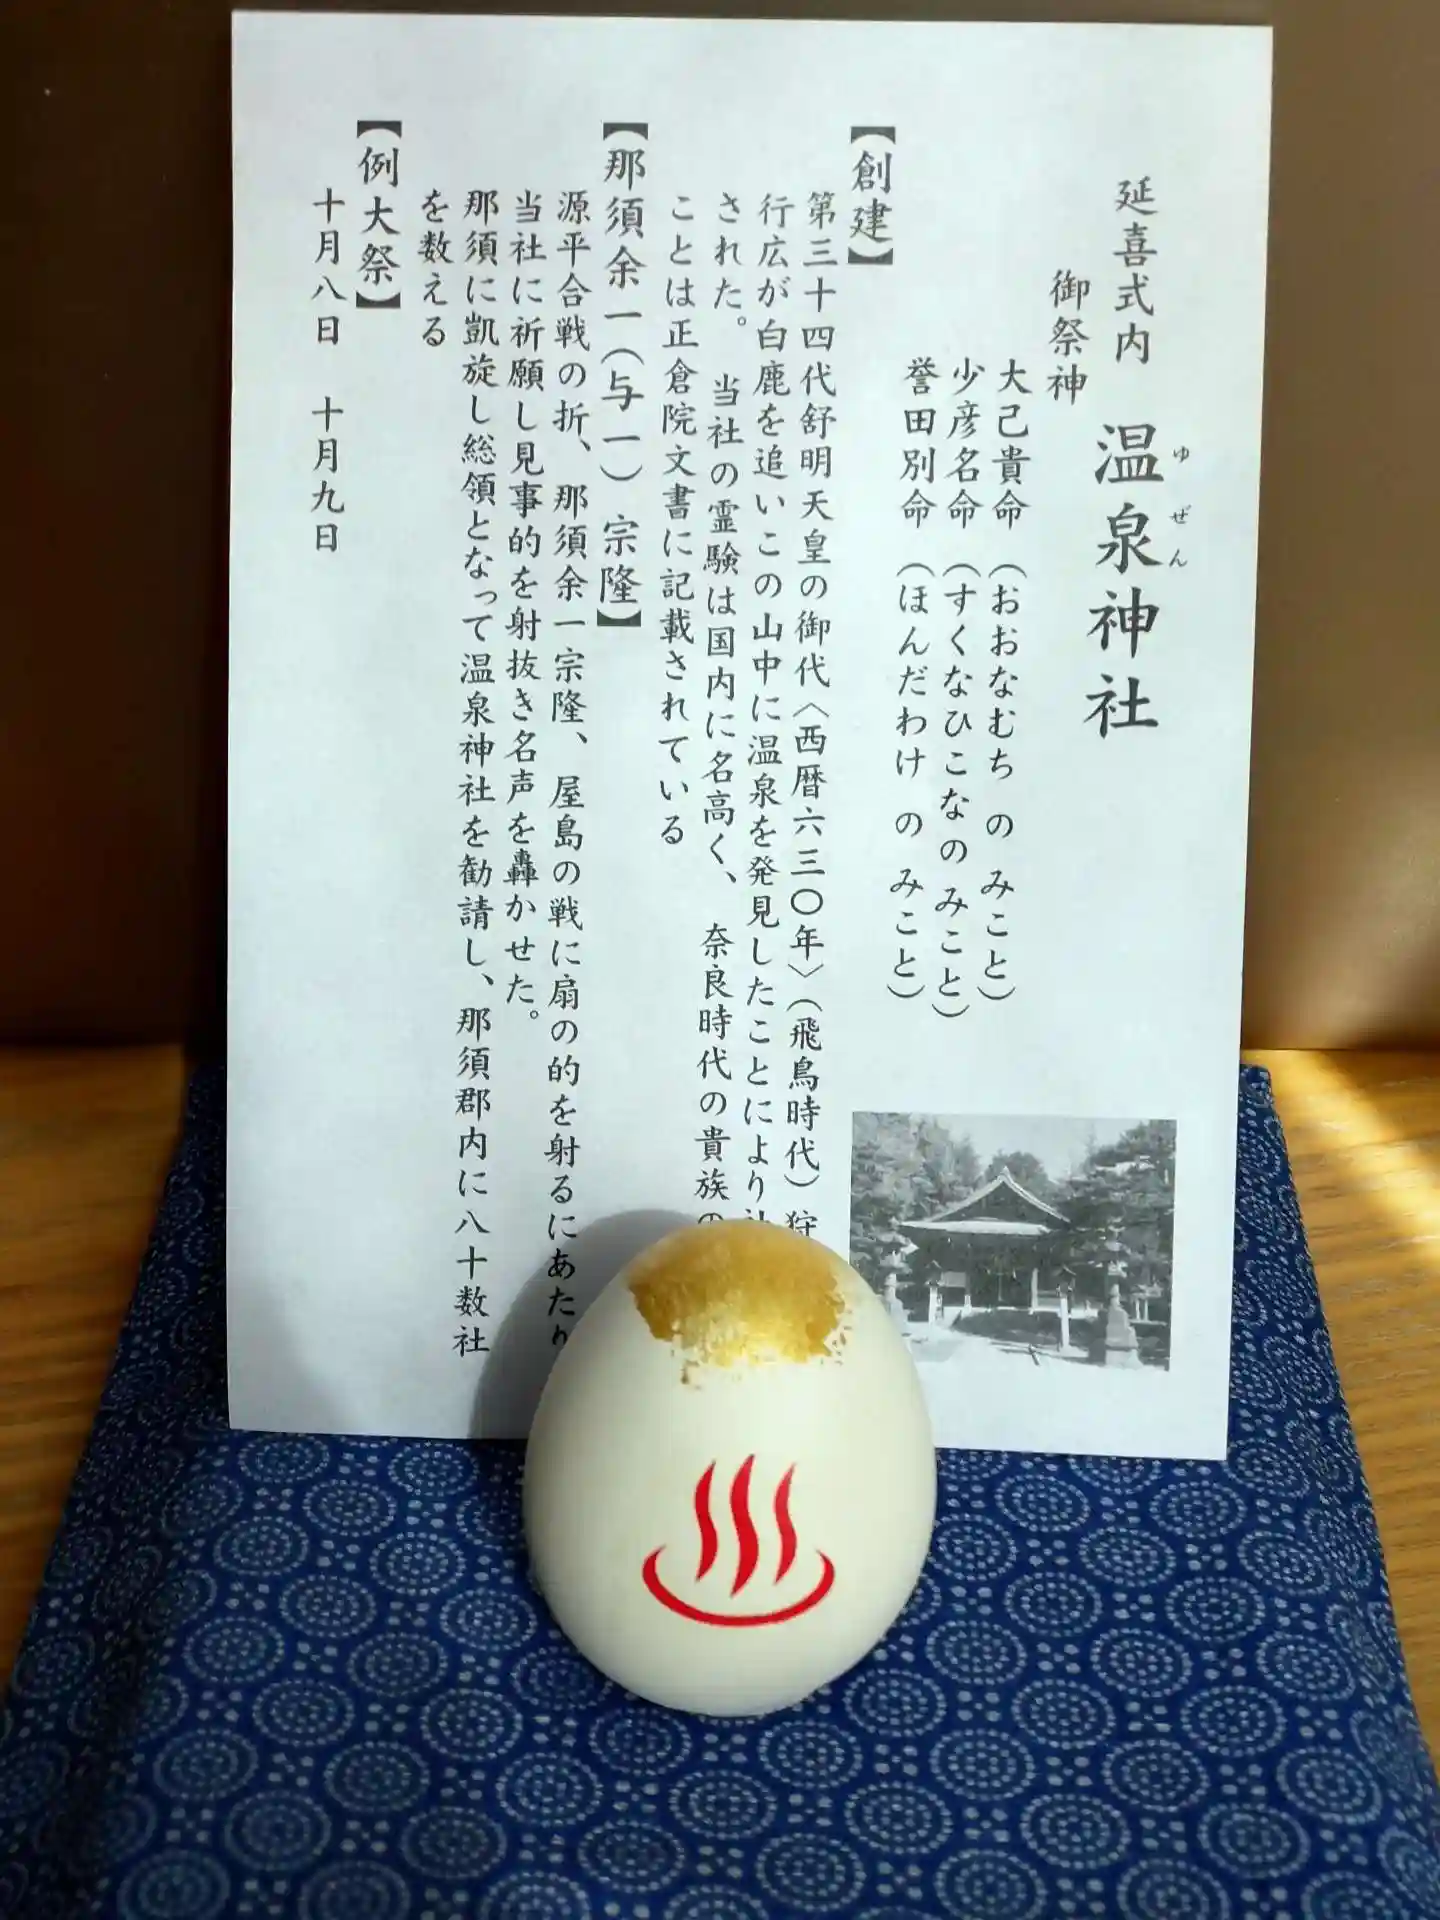 延喜式内 温泉神社
ゆぜん
御祭神
大己貴命(おおなむち の みこと)
少彦名命(すくなひこなの みこと)
誉田別命(ほんだわけ の みこと)
【創建】
第三十四代舒明天皇の御代〈西暦六三〇年〉(飛鳥時代)狩
行広が白鹿を追いこの山中に温泉を発見したことにより社
された。 当社の霊験は国内に名高く、 奈良時代の貴族の
ことは正倉院文書に記載されている
【那須余一(与一) 宗隆】
源平合戦の折、那須余一宗隆、屋島の戦に扇の的を射るにあたり
当社に祈願し見事的を射抜き名声を轟かせた。
那須に凱旋し総領となって温泉神社を勧請し、那須郡内に八十数社
を数える
【例大祭】
十月八日 十月九日